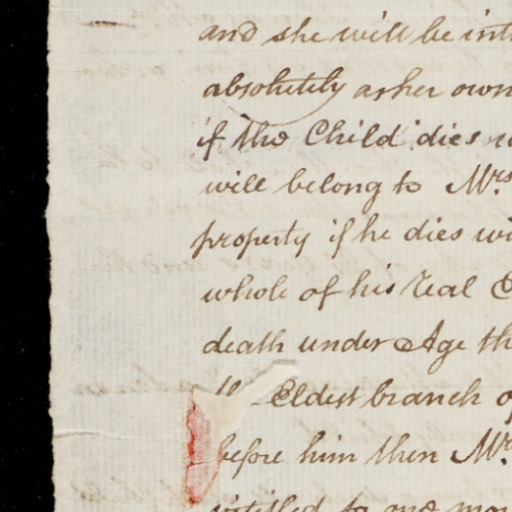 and she will be
absolutily as her own
if the Child dies
will belong to Mrs
property if he dies
whole of his real
death under Age
Eldest branch
before him then Mr
intitled to one